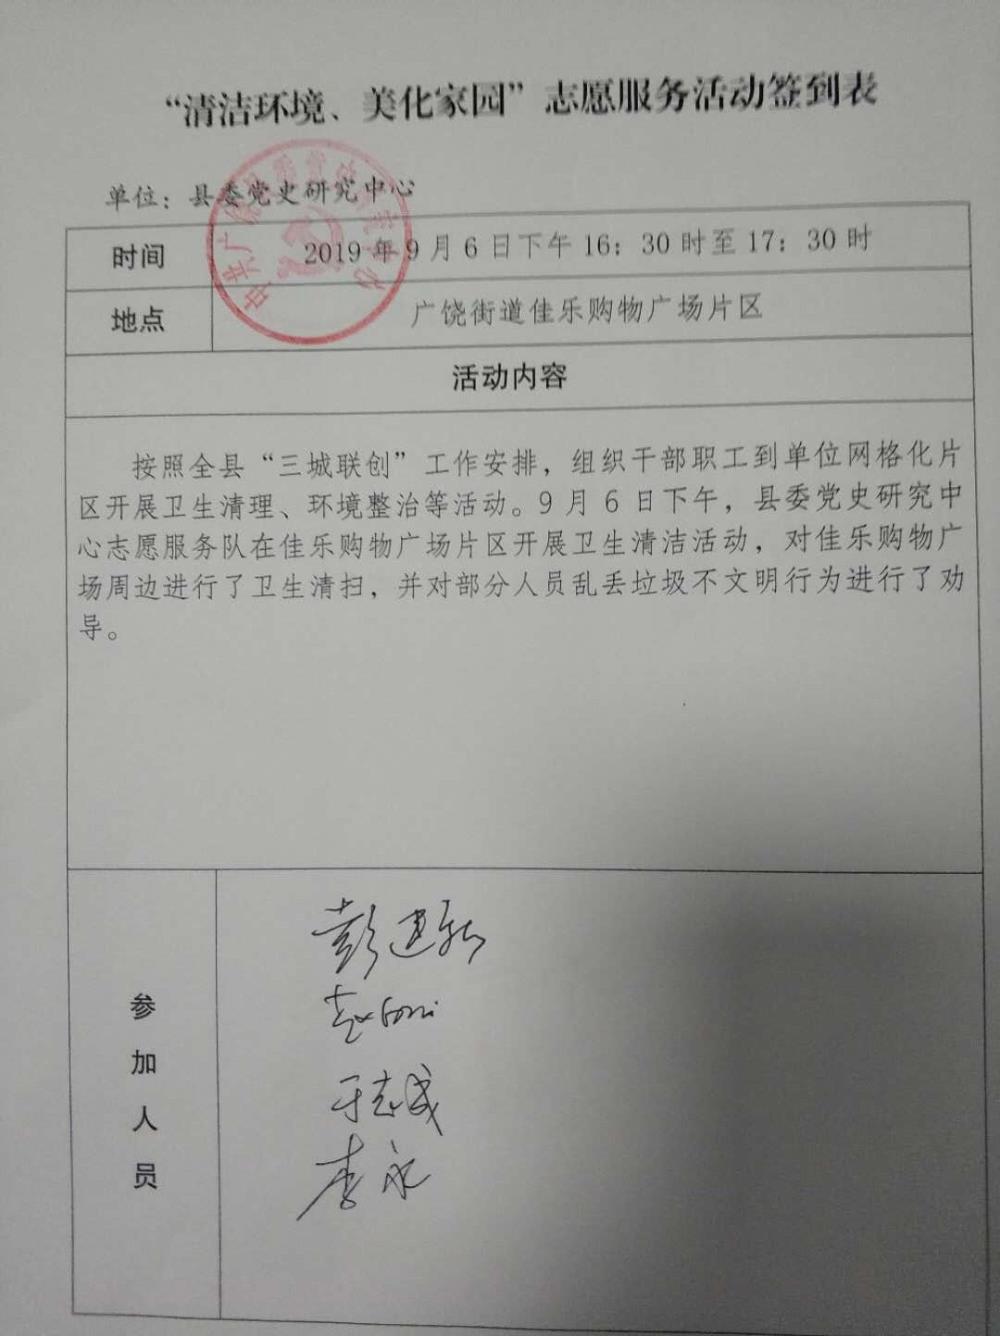 “清洁环境、美化家园”志愿服务活动签到表
单位：县委党史研究中心
时间 2019年9月6日下午16：30时至17：30时
地点 广饶街道佳乐购物广场片区
活动内容
按照全县“三城联创”工作安排，组织干部职工到单位网格化片
区开展卫生清理、环境整治等活动。9月6日下午，县委党史研究中
心志愿服务队在佳乐购物广场片区开展卫生清洁活动，对佳乐购物广
场周边进行了卫生清扫，并对部分人员乱丢垃圾不文明行为进行了劝
导。
参加人员
彭建新
于志成
李永